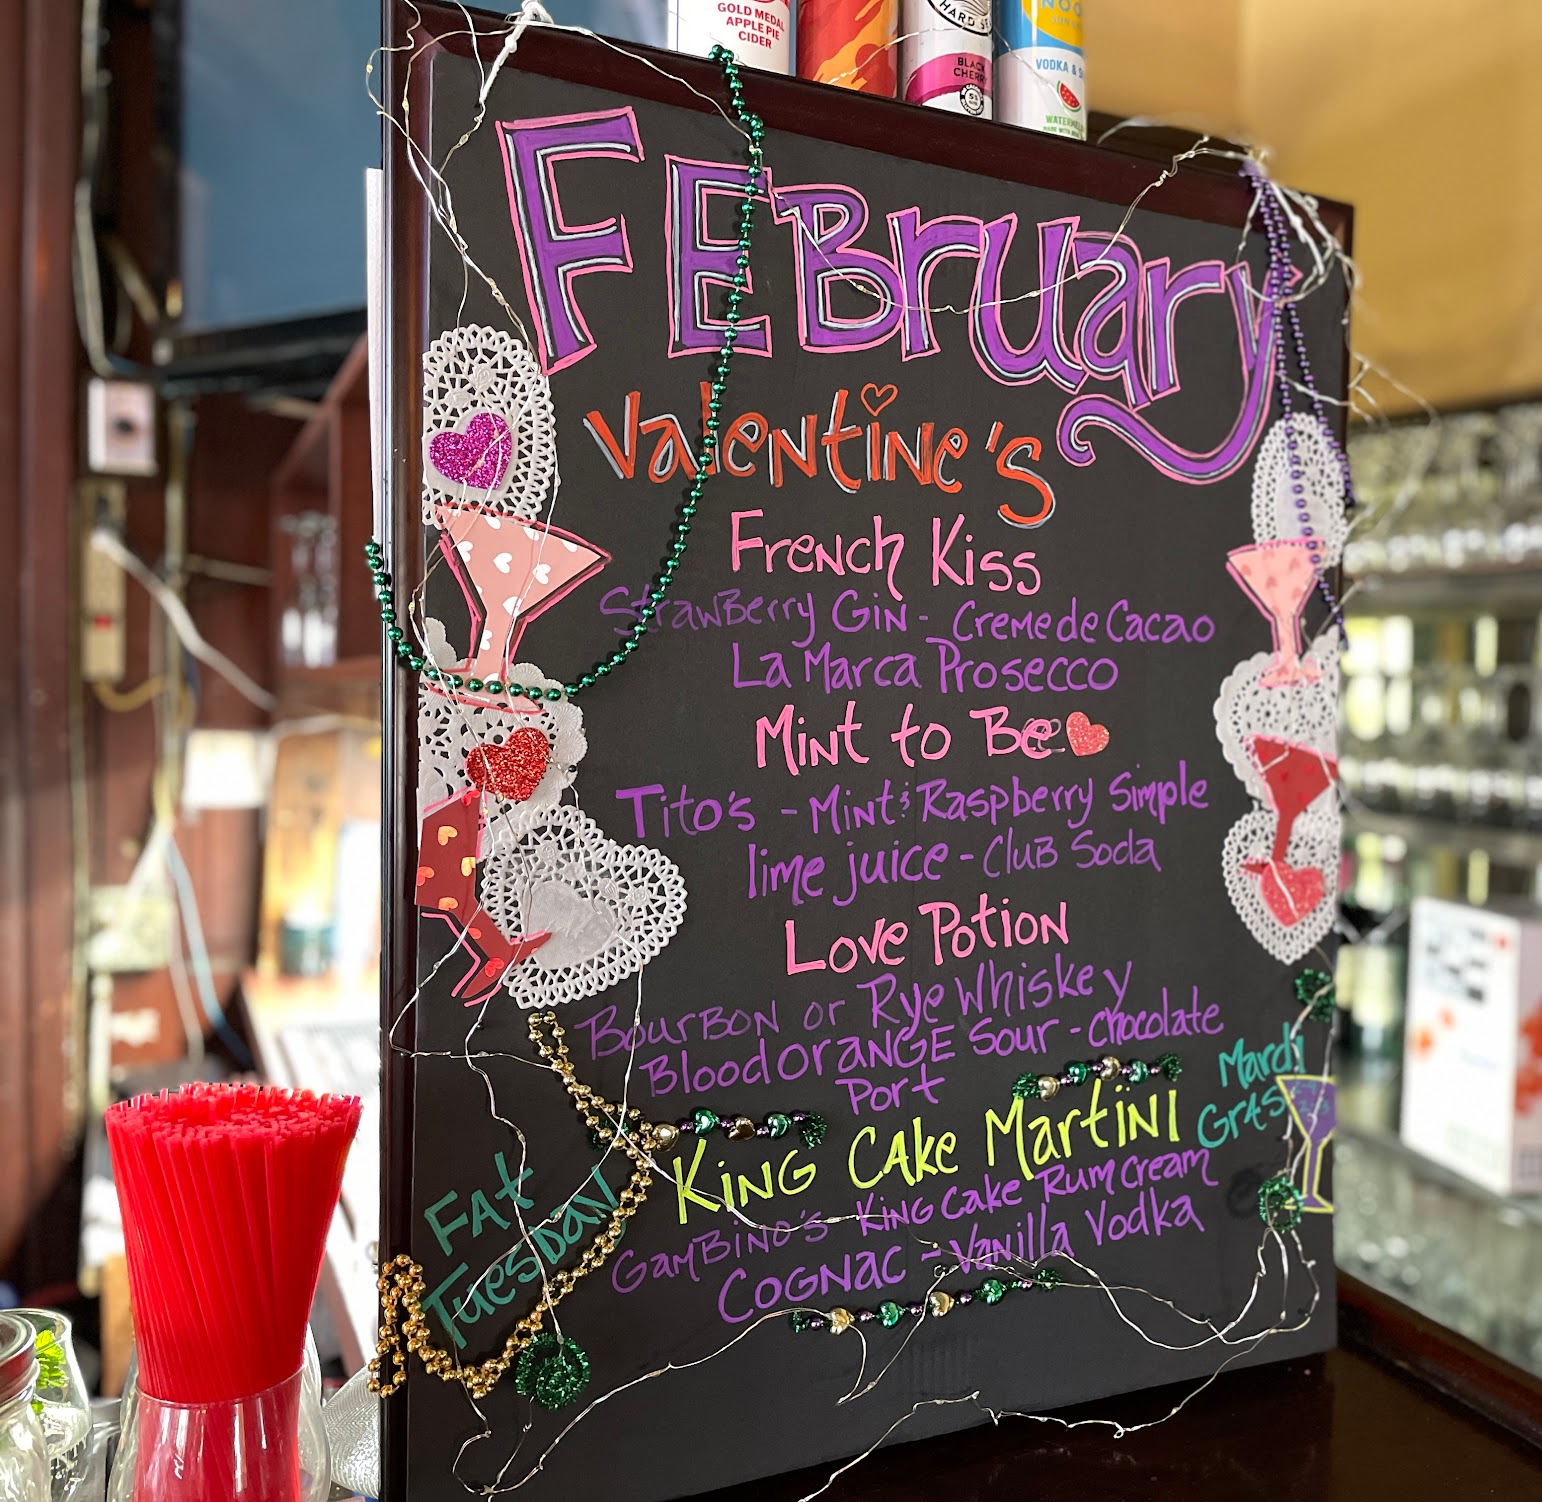 GOLD MEDAL
APPLE PIE
CIDER
BLACK
CHERRY
VODKA &
WATERMELON
FEBruary
Valentine's
French Kiss
Strawberry Gin - Creme de Cacao
La Marca Prosecco
Mint to Be
Tito's - Mint & Raspberry Simple
lime juice - Club Soda
Love Potion
Bourbon or Rye Whiskey
Blood orange Sour - chocolate
Port
Mardi
Gras
King Cake Martini
Fat
Tuesday
Gambino's King Cake Rum Cream
Cognac - Vanilla Vodka